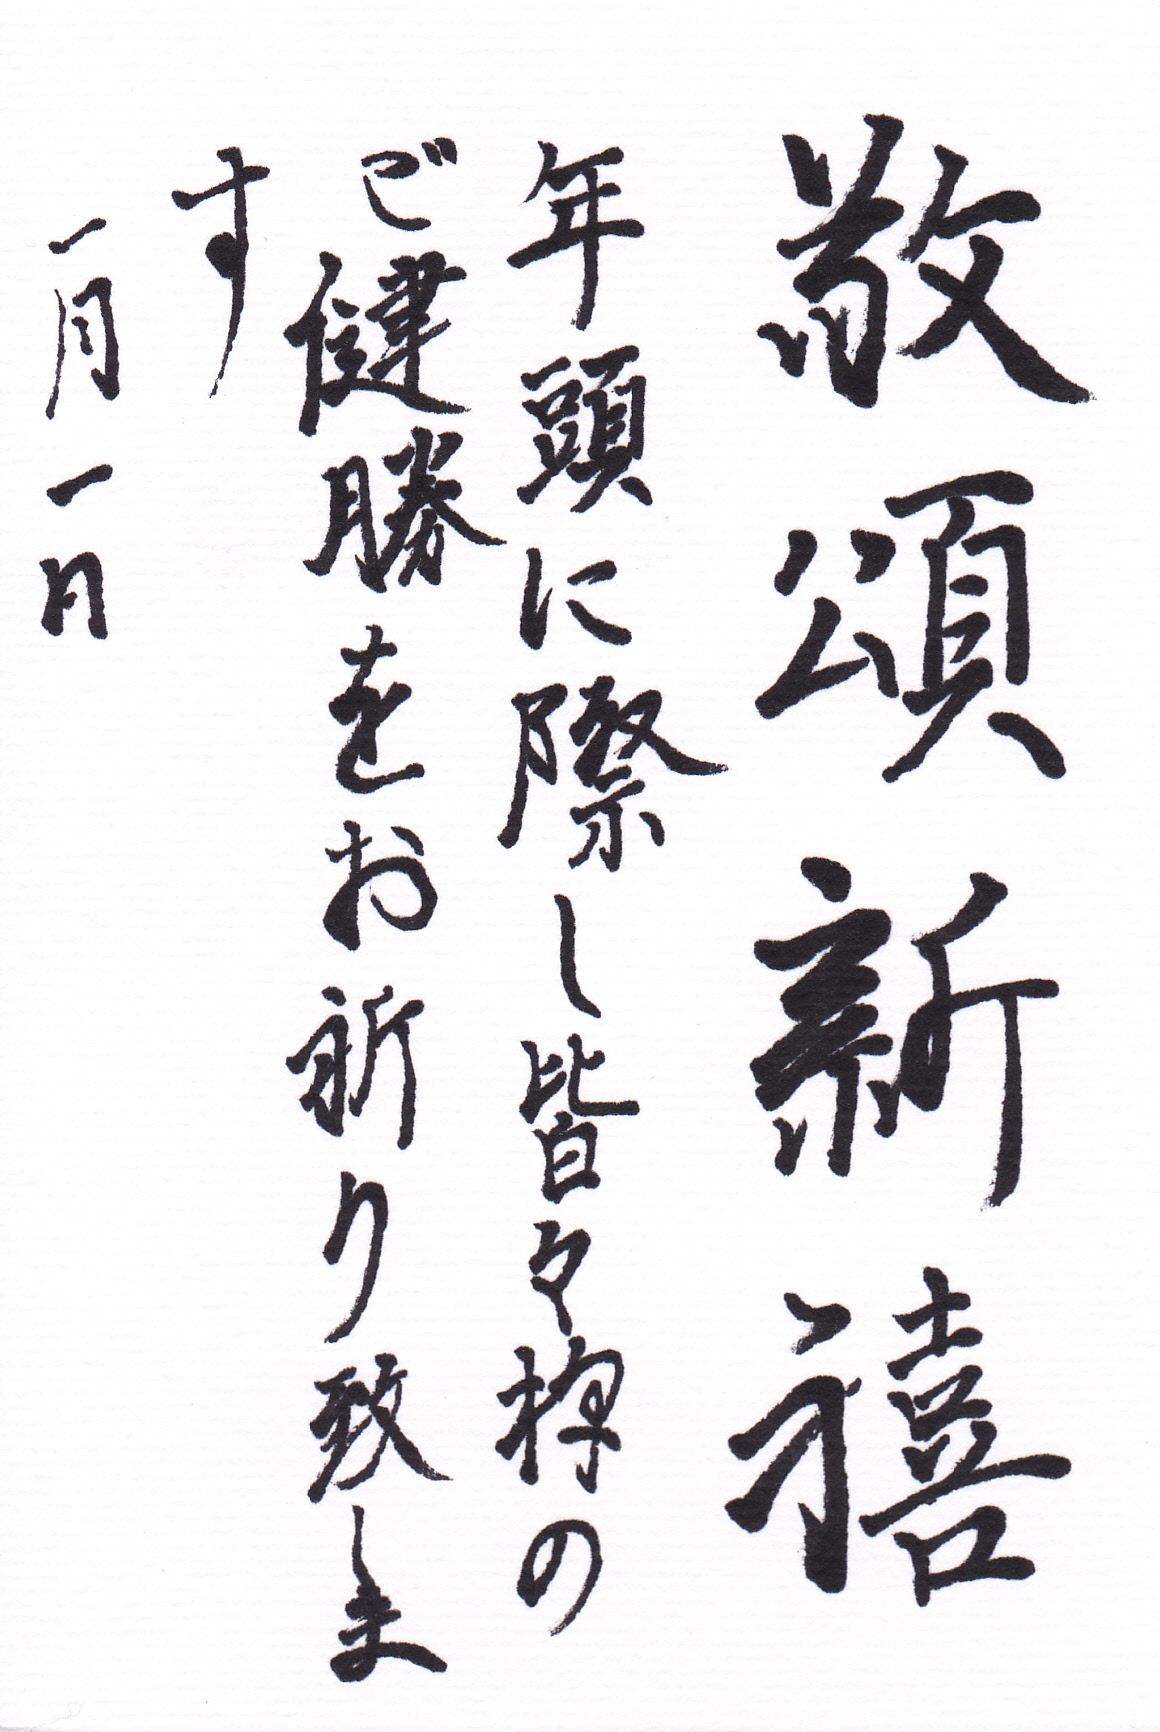 敬頌新禧
年頭に際し皆々様の
ご健勝をお祈り致しま
す
一月一日